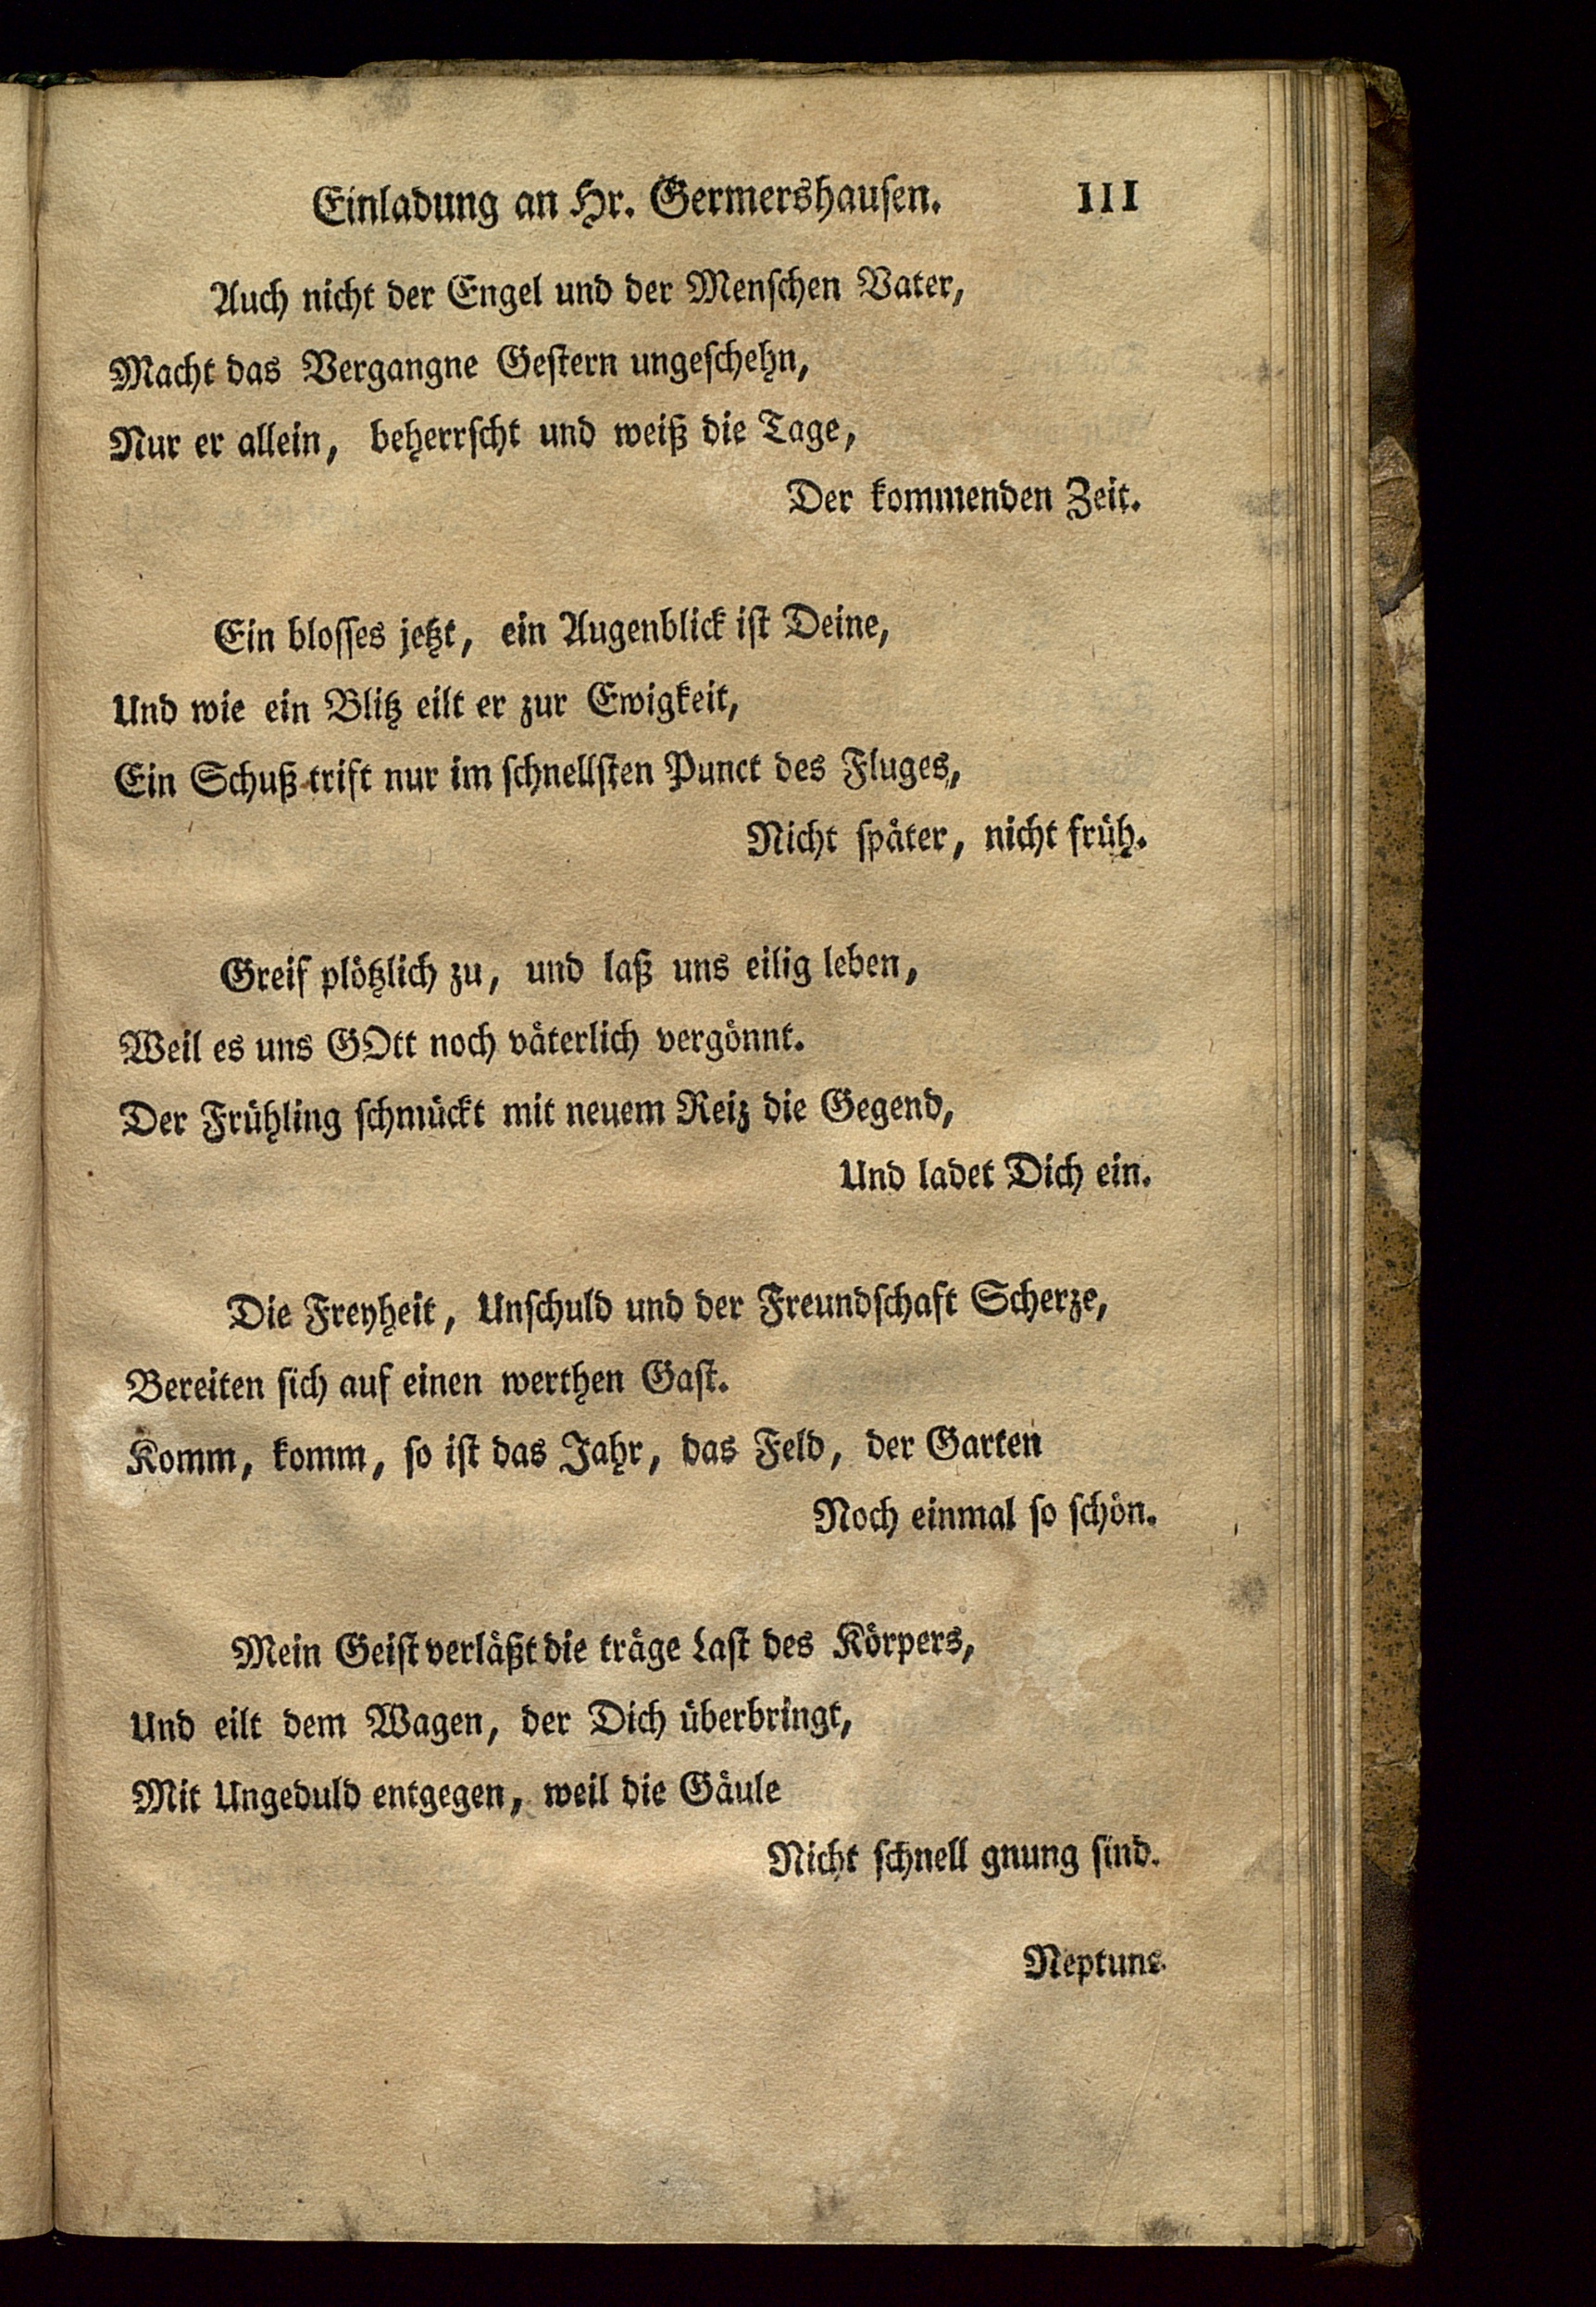 Einladung an Hr. Germershausen. 111
Auch nicht der Engel und der Menschen Vater,
Macht das Vergangne Gestern ungeschehn,
Nur er allein, beherrscht und weiß die Tage,
Der kommenden Zeit.
Ein blosses jetzt, ein Augenblick ist Deine,
Und wie ein Blitz eilt er zur Ewigkeit,
Ein Schuß trift nur im schnellsten Punct des Fluges,
Nicht später, nicht früh.
Greif plötzlich zu, und laß uns eilig leben,
Weil es uns GOtt noch väterlich vergönnt.
Der Frühling schmückt mit neuem Reiz die Gegend,
Und ladet Dich ein.
Die Freyheit, Unschuld und der Freundschaft Scherze,
Bereiten sich auf einen werthen Gast.
Komm, komm, so ist das Jahr, das Feld, der Garten
Noch einmal so schön.
Mein Geist verläßt die träge Last des Körpers,
Und eilt dem Wagen, der Dich überbringt,
Mit Ungeduld entgegen, weil die Gäule
Nicht schnell gnung sind.
Neptuns